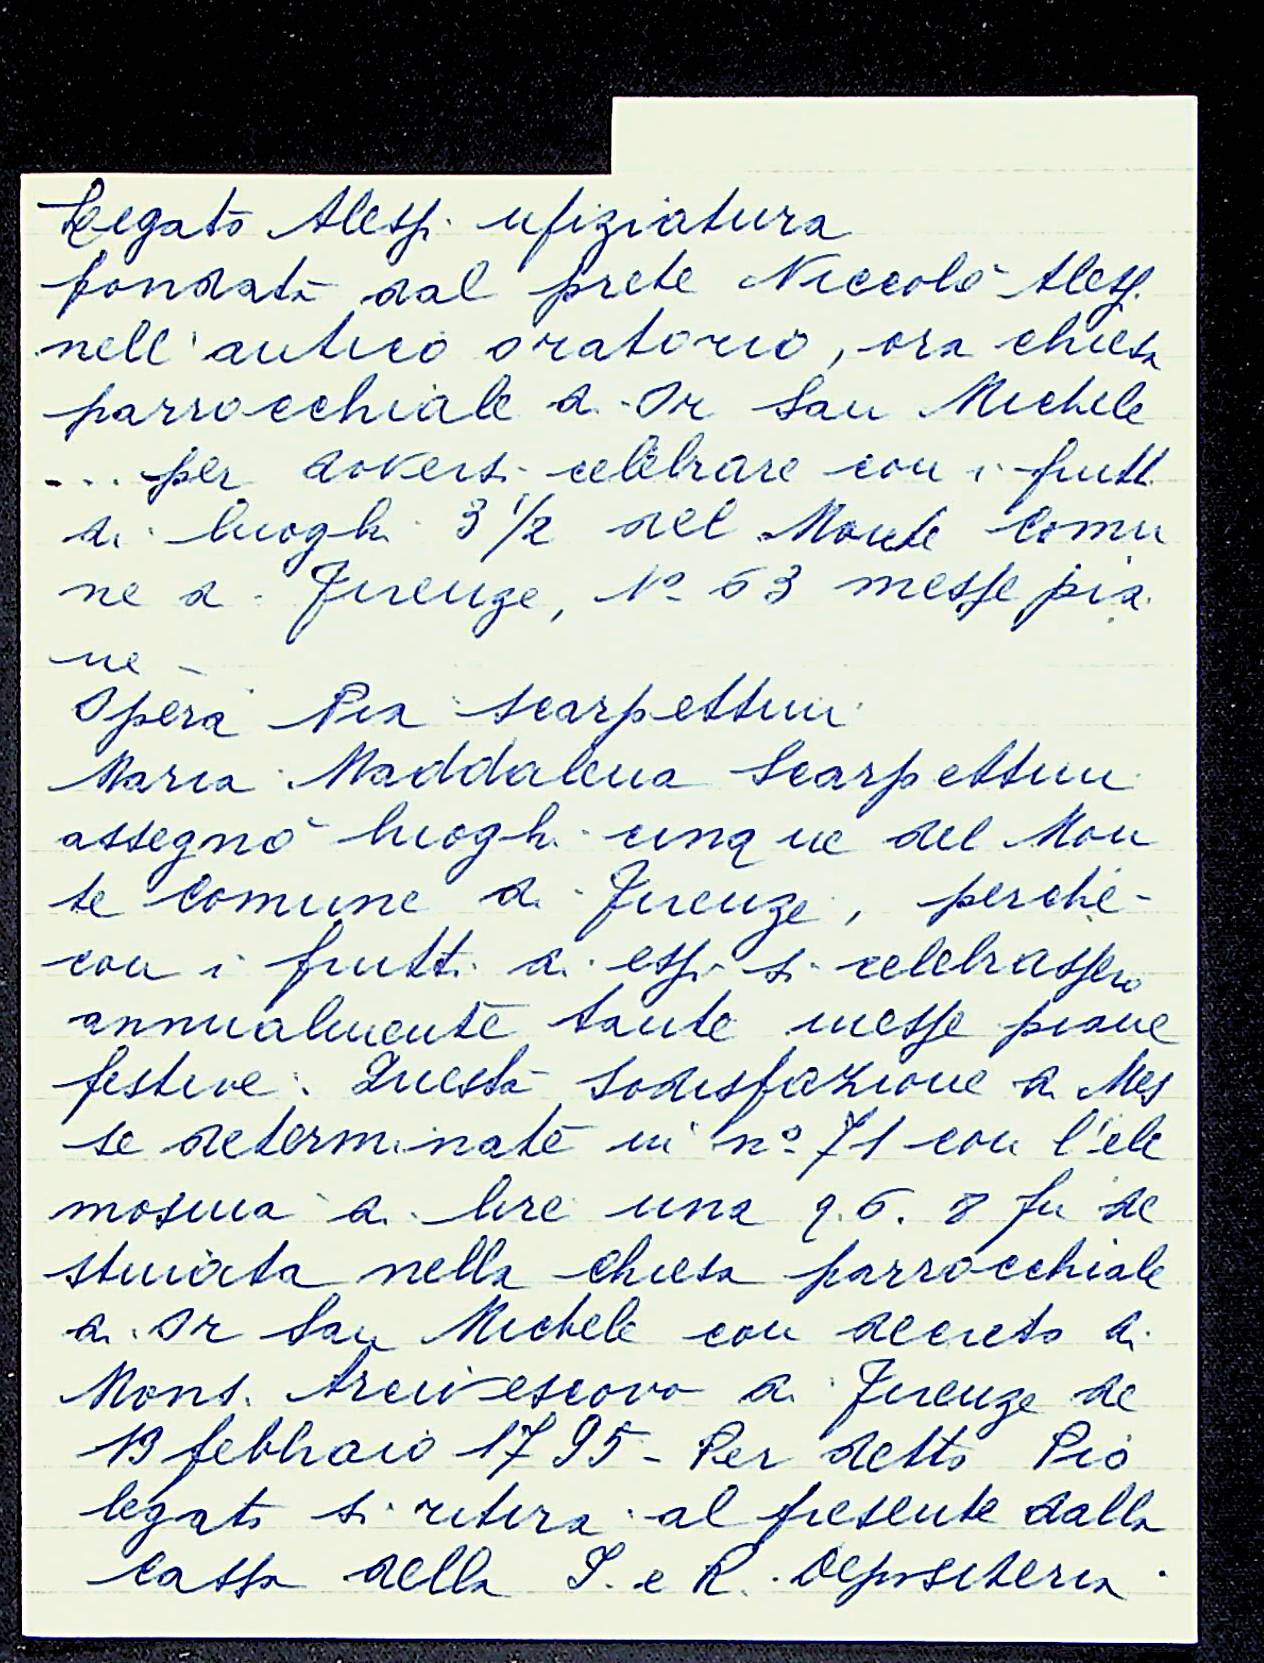 Legato Alessi ufiziatura
fondata dal prete Niccolò Alessi
nell'antico oratorio, ora chiesa
parrocchiale di Or San Michele
... per doversi celebrare con i frutti
di luoghi 3 1/2 del Monte Comu
ne di Firenze, Nº 63 messe pia
ne -
Opera Pia Scarpettini
Maria Maddalena Scarpettini
assegnò luoghi cinque del Mon
te Comune di Firenze, perché
con i frutti di essi si celebrassero
annualmente tante messe piane
festive. Questa sodisfazione di Mes
se determinate in nº 71 con l'ele
mosina di lire una 9. 6. 8 fu de
stinata nella chiesa parrocchiale
di Or San Michele con decreto di
Mons. Arcivescovo di Firenze de
19 febbraio 1795 - Per detto Pio
legato si ritira al presente dalla
Cassa della I. e R. Depositeria.